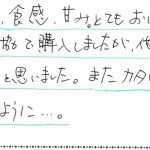 、食感、甘み。とてもお
協で購入しましたが、他
と思いました。またカタ
ように…。